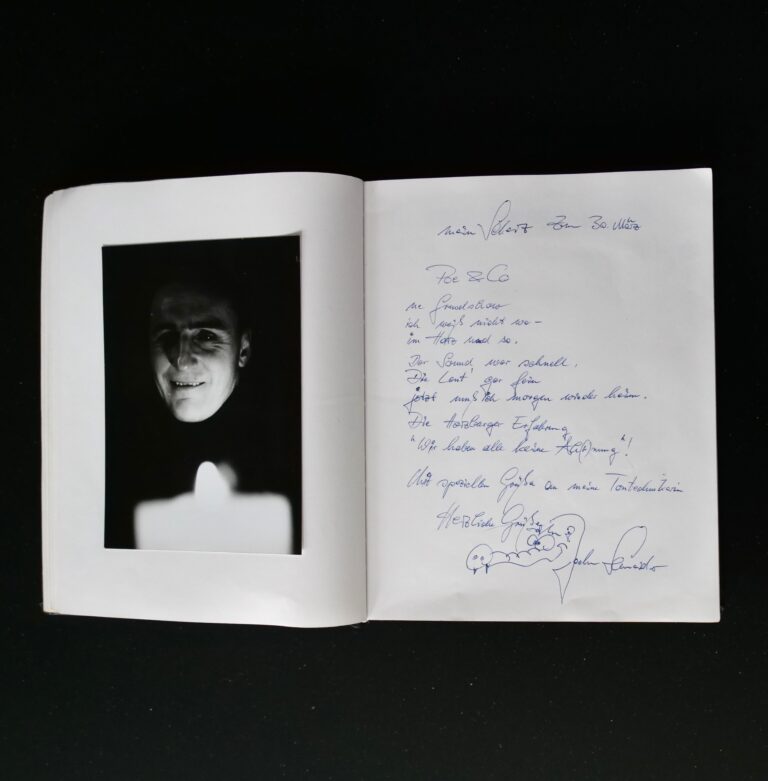 mein zum 30. März
Poe & Co
ne
ich weiß nicht wo –
im Harz und so.
Der Sound war schnell,
Die Leut' gar fein
jetzt muß ich morgen wieder heim.
Die Erfahrung
"Wir haben alle keine
Mit speziellen Grüßen an meine Tontechnikerin
Herzliche Grüße